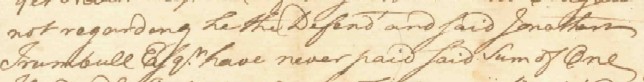 not regarding he the Defend.t and said Jonathan
Trumbull Esq.r have never paid said Sum of One